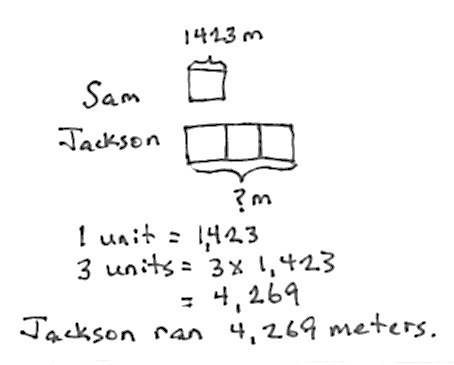 1423 m
Sam
Jackson
? m
1 unit = 1,423
3 units = 3 x 1,423
= 4,269
Jackson ran 4,269 meters.